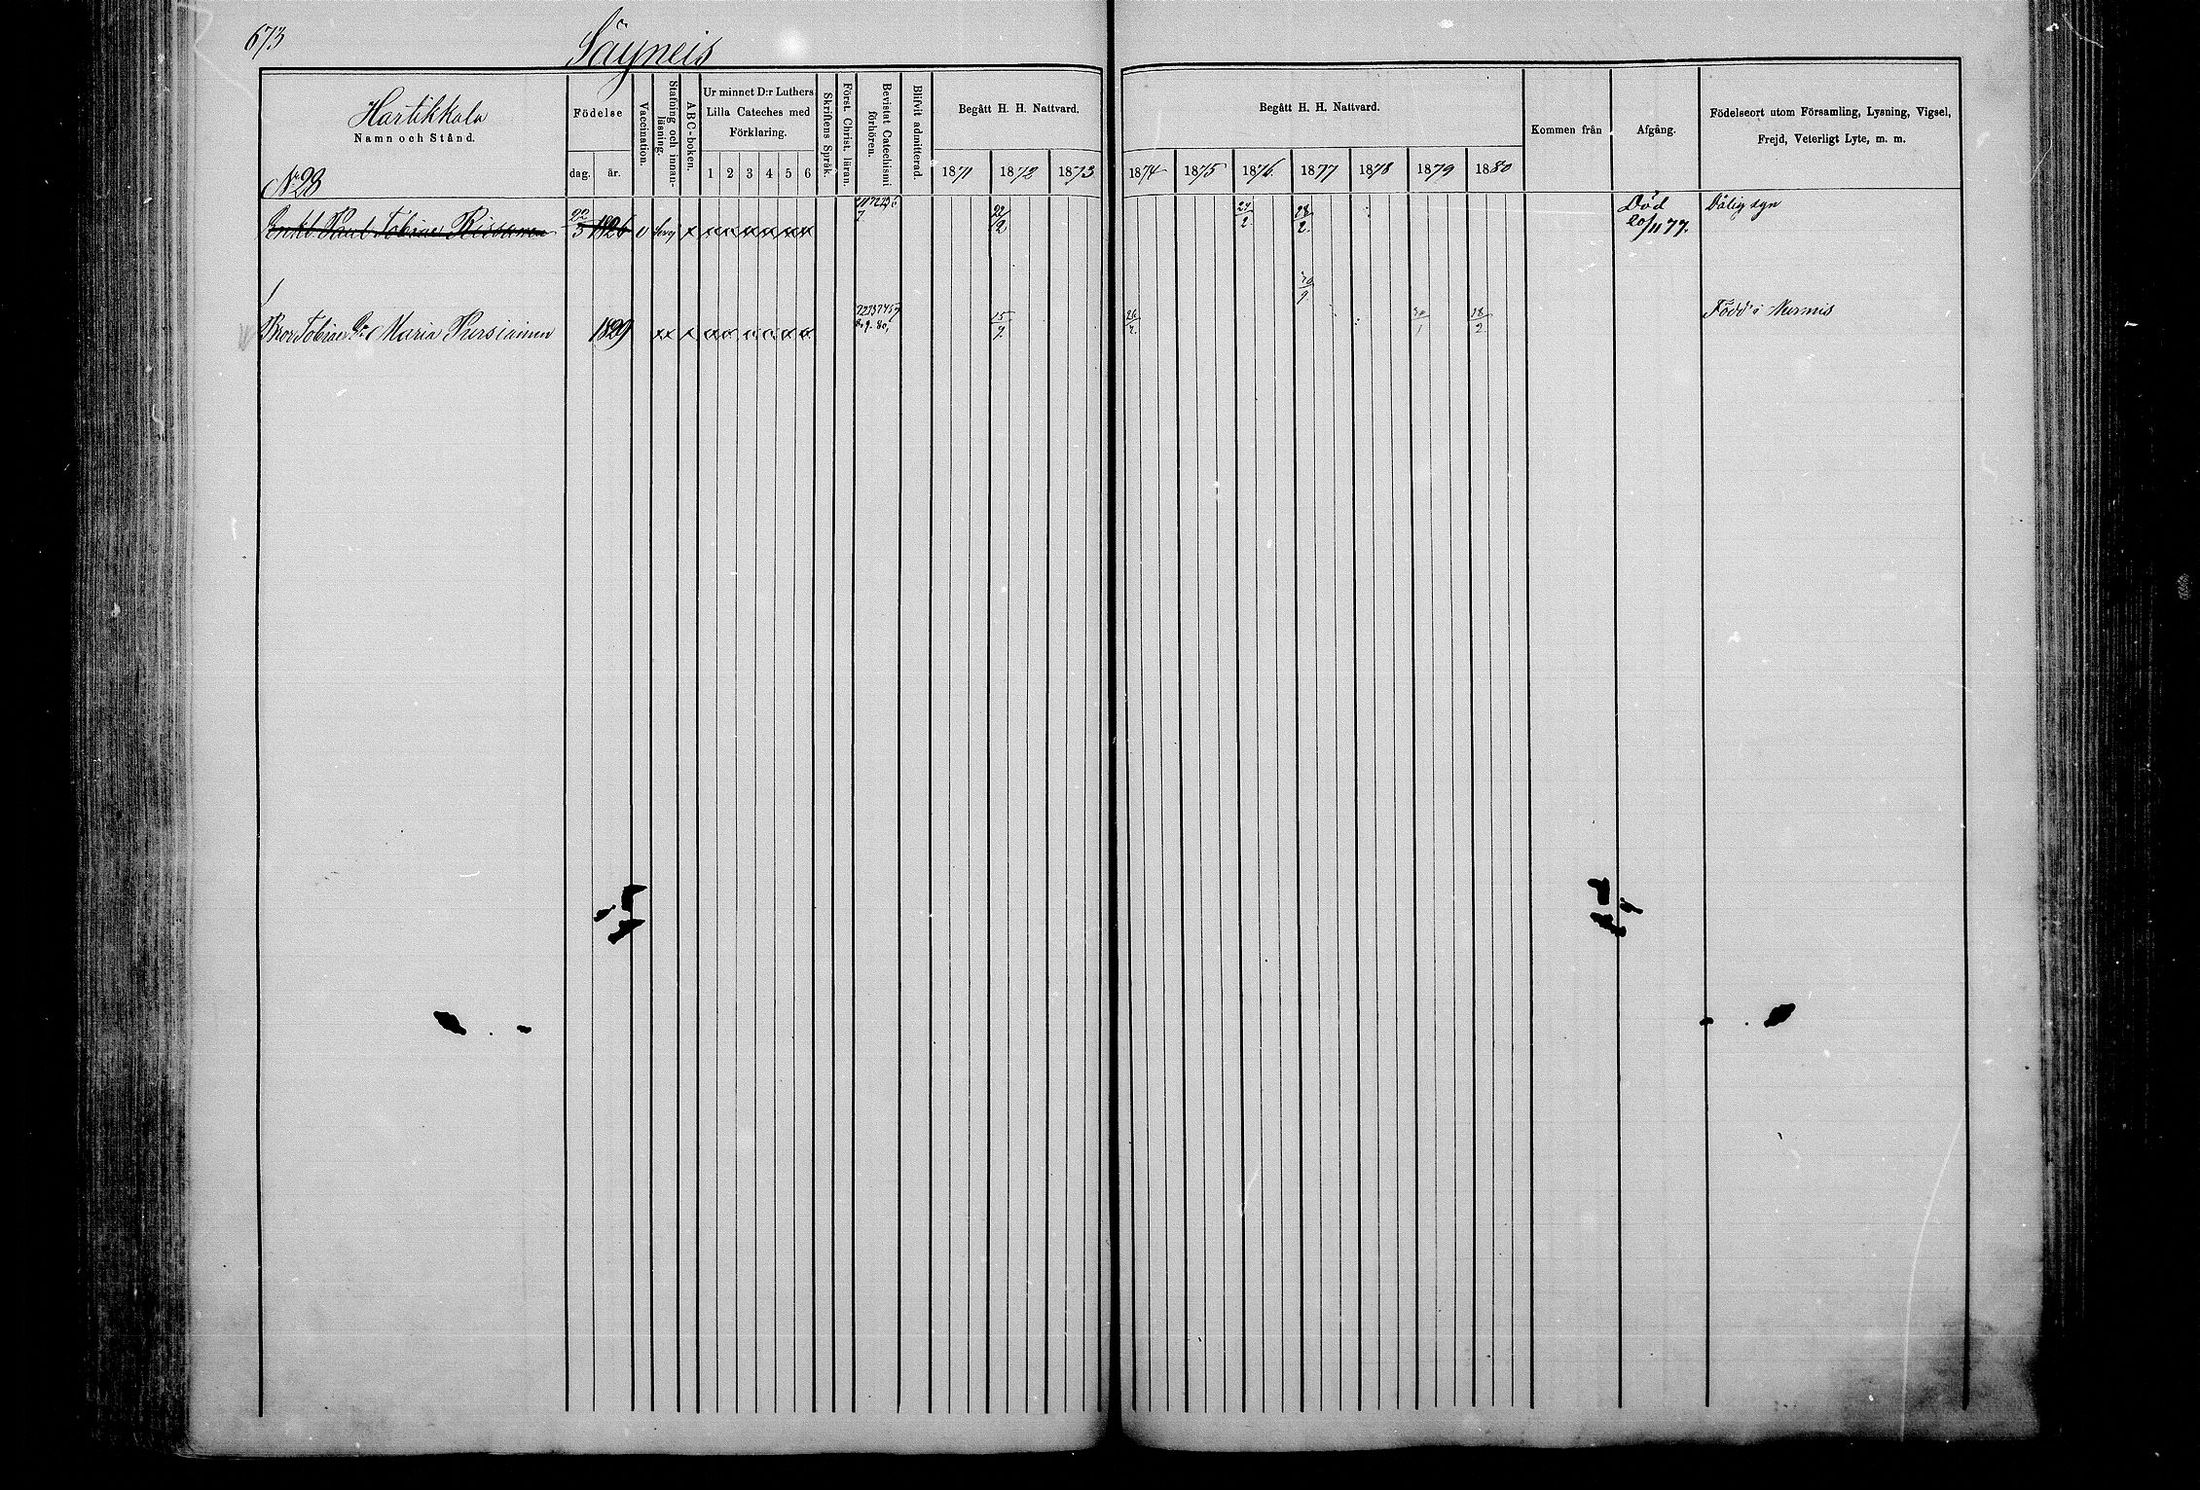 673
Säyneis
Hartikkala
Namn och Stånd.
N:o 28
Födelse
dag.
år.
Vaccination.
Stafning och innan-läsning.
ABC-boken.
Ur minnet D:r Luthers
Lilla Cateches med
Förklaring.
1 2 3 4 5 6
Skriftens Språk.
Först. Christ. läran.
Bevistat Catechismi förhören.
Blifvit admitterad.
Begått H. H. Nattvard.
1871 1872 1873
Begått H. H. Nattvard.
1874 1875 1876 1877 1878 1879 1880
Kommen från
Afgång.
Födelseort utom Församling, Lysning, Vigsel,
Frejd, Veterligt Lyte, m. m.
Enkl. Paul Tobiae Rissanen 22/3 1826
22/2 27/2 28/2
Död
20/11 77.
Dålig syn
30/9
Bror Tobiae Maria Pursiainen 1829
15/9 18/2
Född i Nurmis